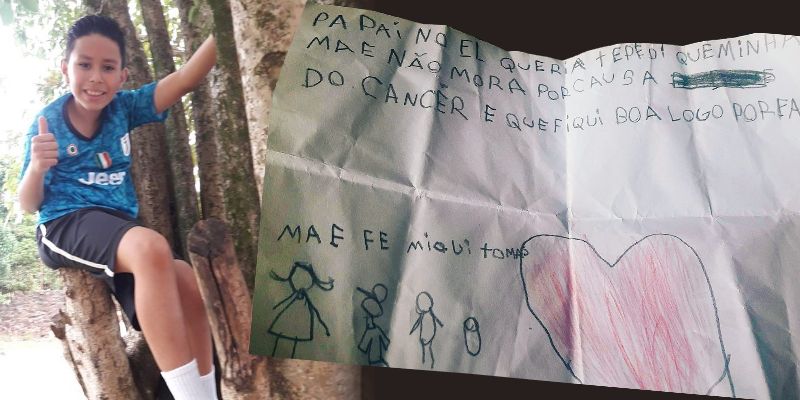 PAPAI NOEL QUERIA TEPEDI QUE MINHA
MAE NÃO MORA POR CAUSA
DO CANCÊR E QUE FIQUI BOA LOGO PORFA
MAE FE miqui tomas
Jeep